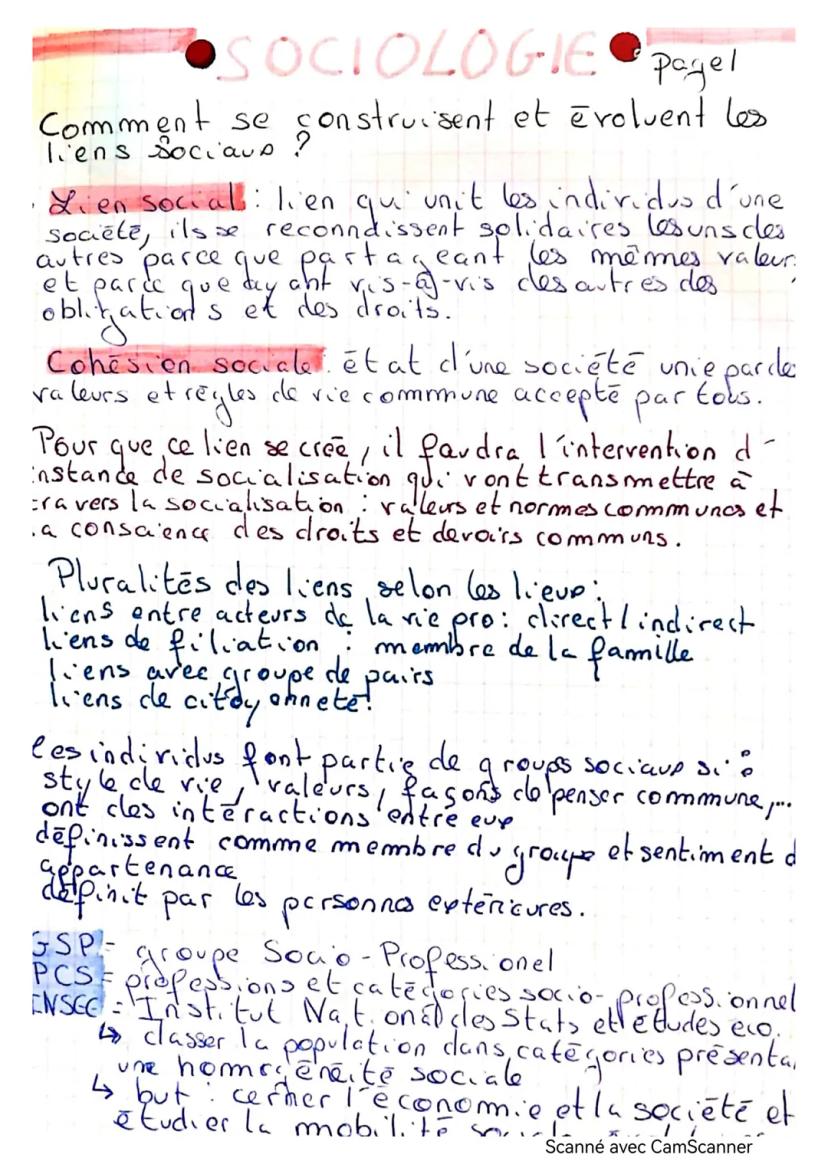 SOCIOLOGIE page 1
Comment se construisent et évoluent les
liens sociaux ?
Lien social : lien qui unit les individus d'une
société, ils se reconnaissent solidaires les uns des
autres parce que partageant les mêmes valeur
et parce que ayant vis-à-vis des autres des
obligations et des droits.
Cohésion sociale : état d'une société unie par de
valeurs et règles de vie commune accepté par tous.
Pour que ce lien se crée, il faudra l'intervention d'
instance de socialisation qui vont transmettre à
travers la socialisation : valeurs et normes communes et
la conscience des droits et devoirs communs.
Pluralités des liens selon les lieux :
liens entre acteurs de la vie pro : direct/indirect
liens de filiation : membre de la famille
liens avec groupe de pairs
liens de citoyenneté!
les individus font partie de groups sociaux si :
style de vie, valeurs, façons de penser commune,...
ont des intéractions entre eux
définissent comme membre du groupe et sentiment d
appartenance
définit par les personnes extérieures.
GSP = groupe Socio-Professionel
PCS = professions et catégories socio-professionnel
INSEE = Institut National des Stats et études eco.
↳ classer la population dans catégories présenta
une homogénéité sociale
↳ but : cerner l'économie et la société et
étudier la mobilité
Scanné avec CamScanner